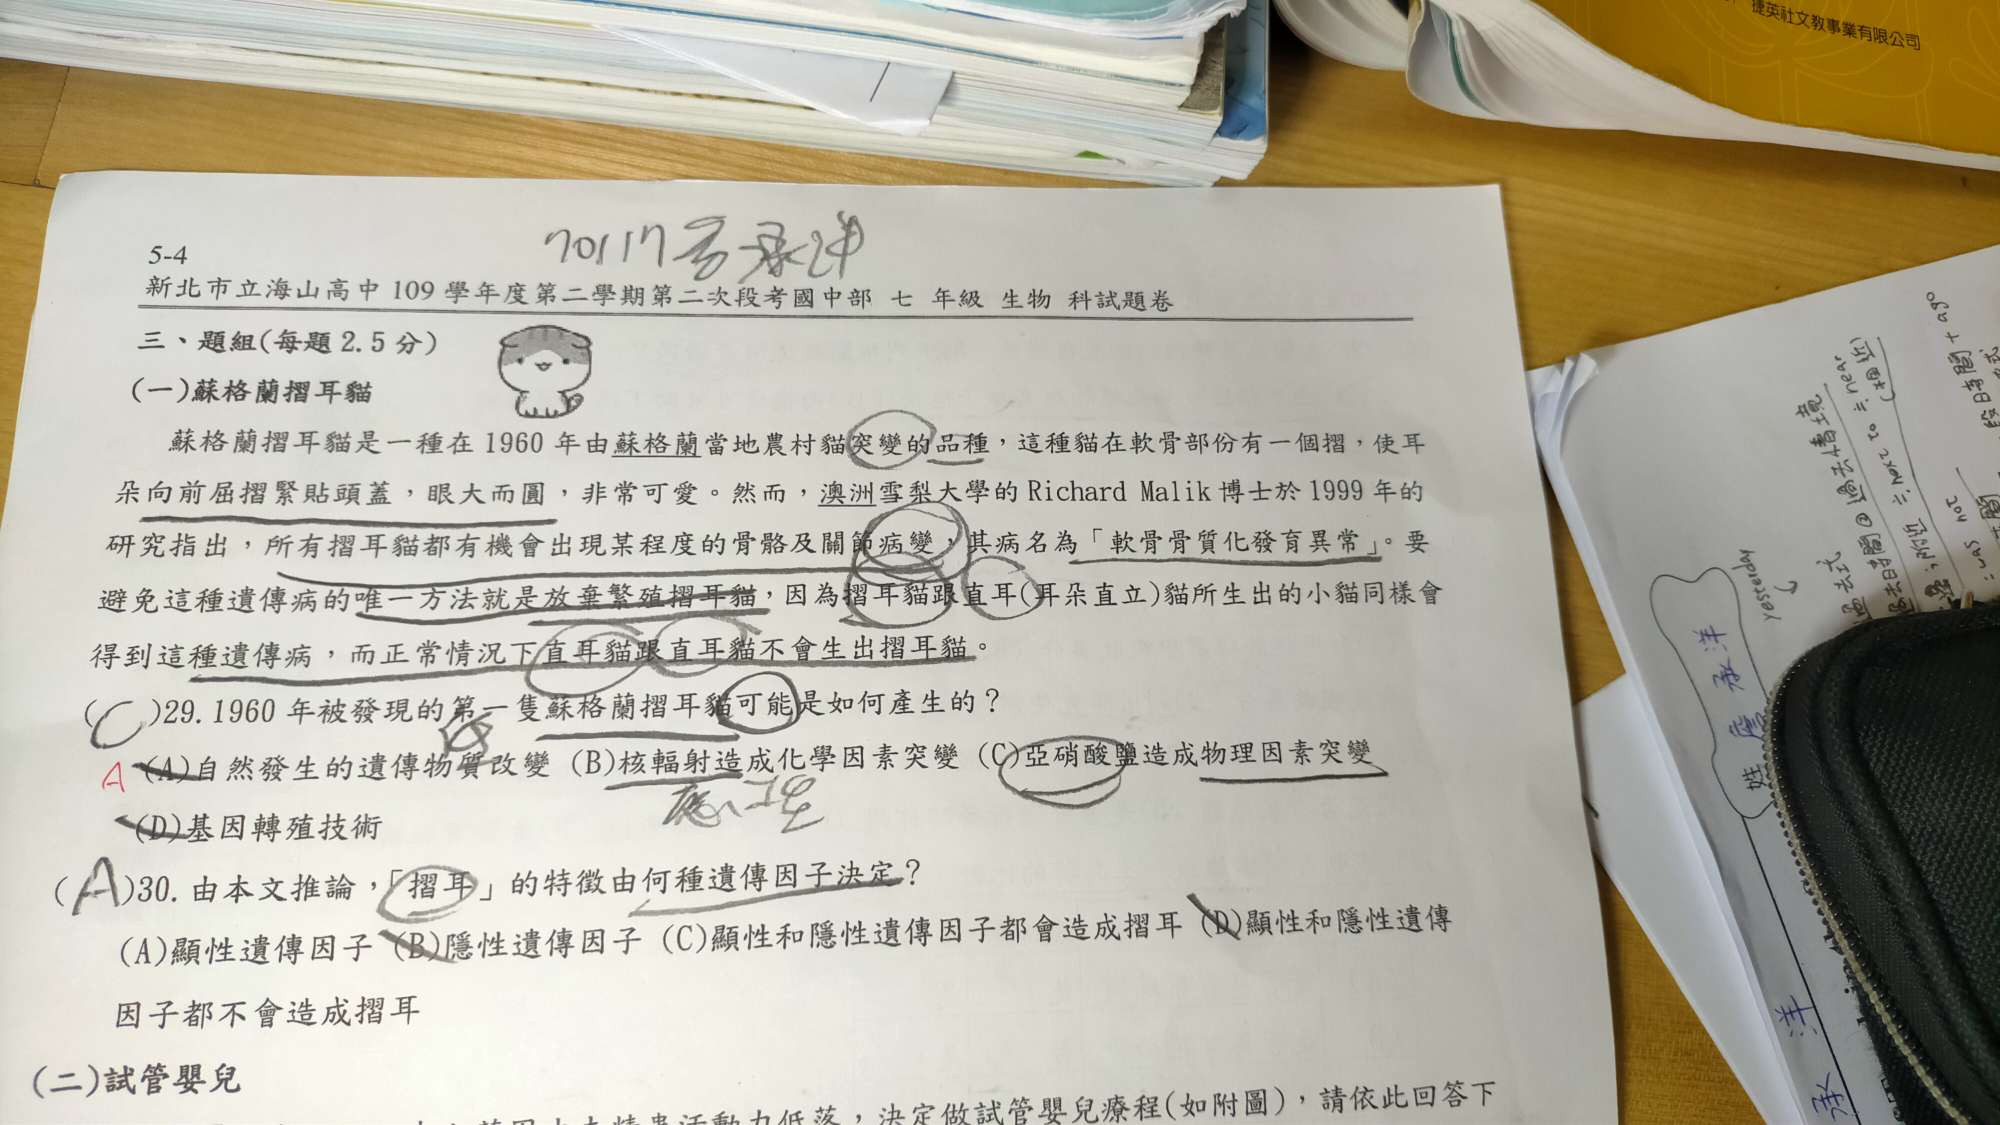 捷英社文教事業有限公司
70117
5-4
新北市立海山高中 109 學年度第二學期第二次段考國中部 七 年級 生物 科試題卷
三、題組(每題2.5分)
(一)蘇格蘭摺耳貓
蘇格蘭摺耳貓是一種在 1960 年由蘇格蘭當地農村貓突變的品種，這種貓在軟骨部份有一個摺，使耳
朵向前屈摺緊貼頭蓋，眼大而圓，非常可愛。然而，澳洲雪梨大學的 Richard Malik 博士於 1999 年的
研究指出，所有摺耳貓都有機會出現某程度的骨骼及關節病變，其病名為「軟骨骨質化發育異常」。要
避免這種遺傳病的唯一方法就是放棄繁殖摺耳貓，因為摺耳貓跟直耳(耳朵直立)貓所生出的小貓同樣會
得到這種遺傳病，而正常情況下直耳貓跟直耳貓不會生出摺耳貓。
( C )29. 1960 年被發現的第一隻蘇格蘭摺耳貓可能是如何產生的？
A (A)自然發生的遺傳物質改變 (B)核輻射造成化學因素突變 (C)亞硝酸鹽造成物理因素突變
(D)基因轉殖技術
( A )30. 由本文推論，「摺耳」的特徵由何種遺傳因子決定？
(A)顯性遺傳因子 (B)隱性遺傳因子 (C)顯性和隱性遺傳因子都會造成摺耳 (D)顯性和隱性遺傳
因子都不會造成摺耳
(二)試管嬰兒
精蟲活動力低落，決定做試管嬰兒療程(如附圖)，請依此回答下
yesterday
姓 詹承洋
洋
承